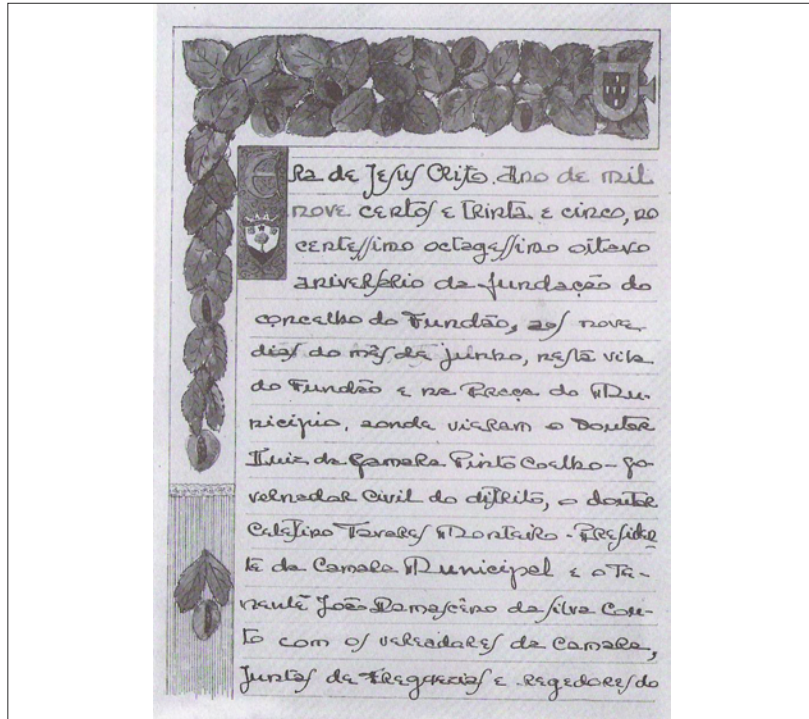 Era de Jesus Cristo. Ano de mil
nove centos e trinta e cinco, no
centessimo octagessimo oitavo
aniversário da fundação do
concelho do Fundão, aos nove
dias do mês de junho, nesta vila
do Fundão e na Praça do Mu-
nicipio, aonde vieram o Doutor
Luiz da Camara Pinto Coelho - go-
vernador Civil do distrito, o doutor
Celestino Tavares Monteiro - Presiden-
te da Camara Municipal e o Te-
nente João Damasceno da Silva Cou-
to com os vereadores da Camara,
Juntas de Freguezias e regedores do